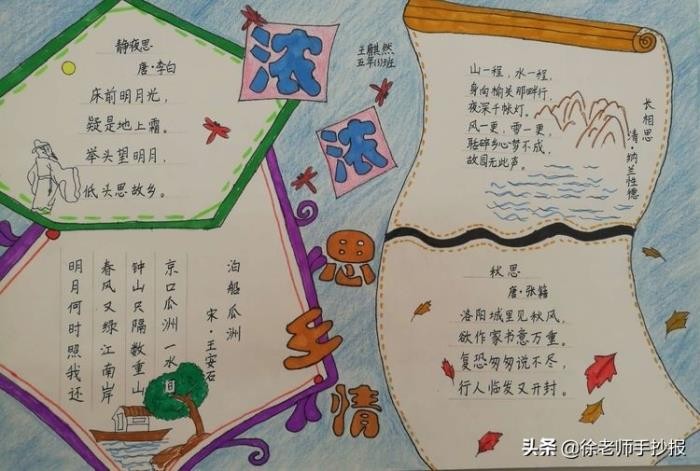 静夜思
唐·李白
床前明月光，
疑是地上霜。
举头望明月，
低头思故乡。
浓
浓
思
乡
情
王麒然
五年(1)班
长相思
清·纳兰性德
山一程，水一程，
身向榆关那畔行，
夜深千帐灯。
风一更，雪一更，
聒碎乡心梦不成，
故园无此声。
泊船瓜洲
宋·王安石
京口瓜洲一水间
钟山只隔数重山
春风又绿江南岸
明月何时照我还
秋思
唐·张籍
洛阳城里见秋风，
欲作家书意万重。
复恐匆匆说不尽，
行人临发又开封。
头条 @徐老师手抄报